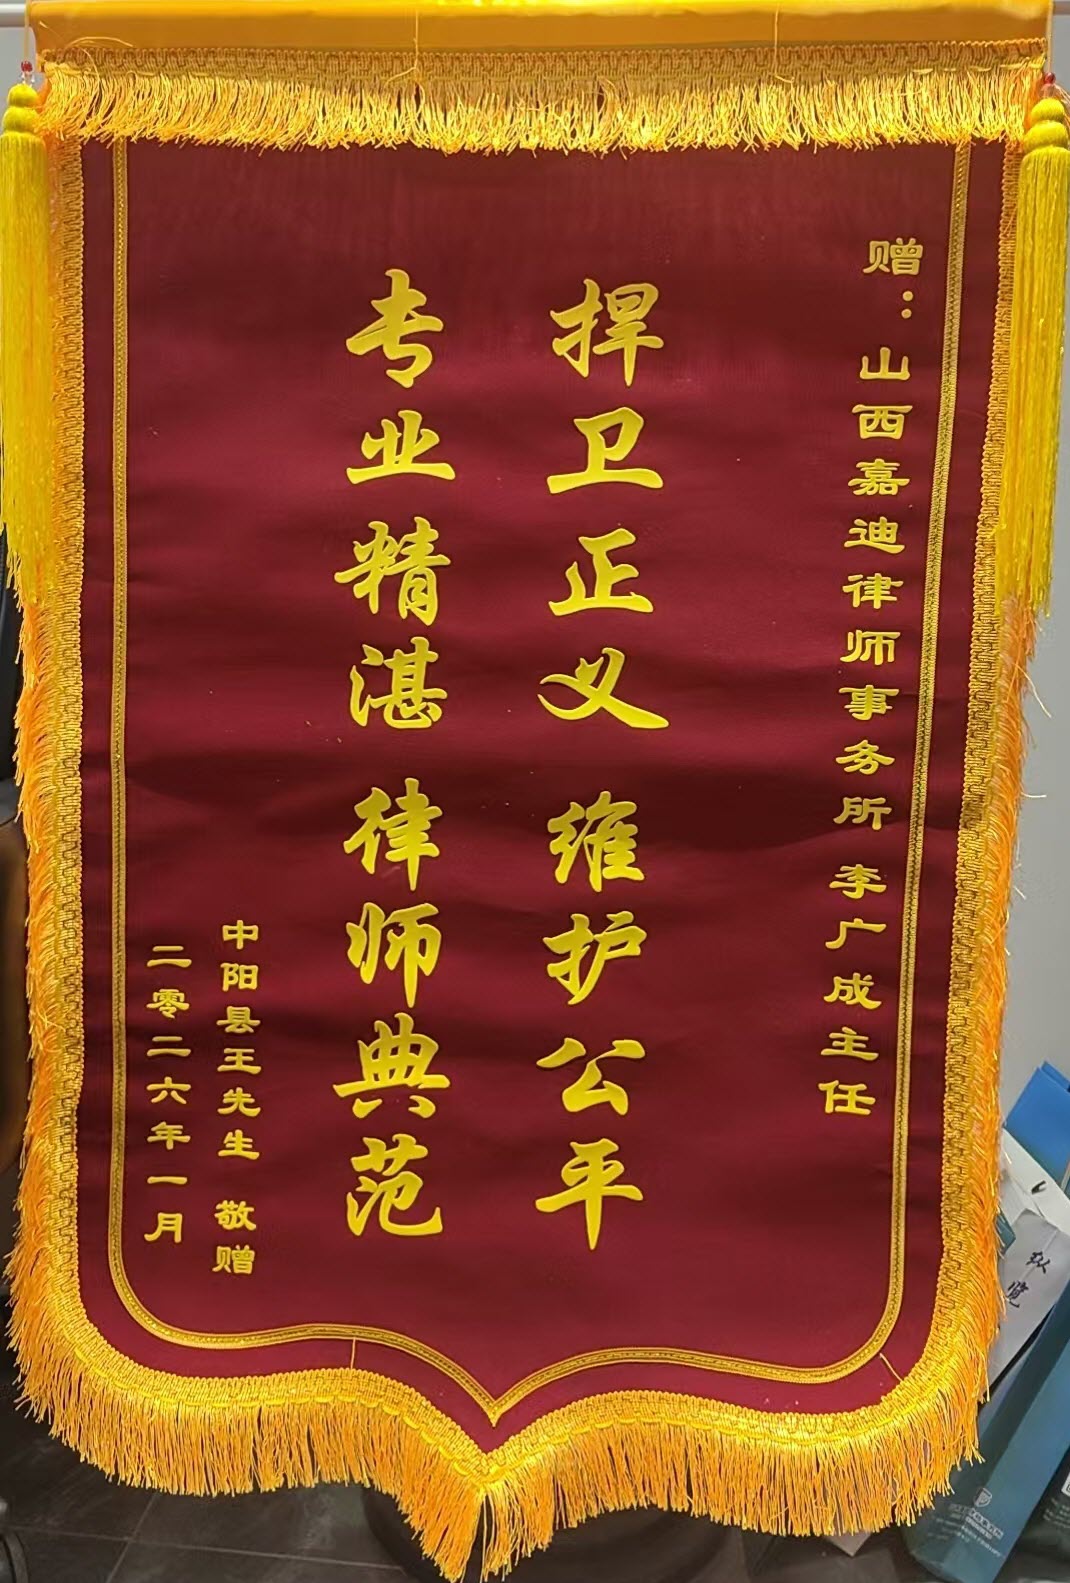 赠：山西嘉迪律师事务所 李广成主任
捍卫正义 维护公平
专业精湛 律师典范
中阳县王先生 敬赠
二零二六年一月
纵览